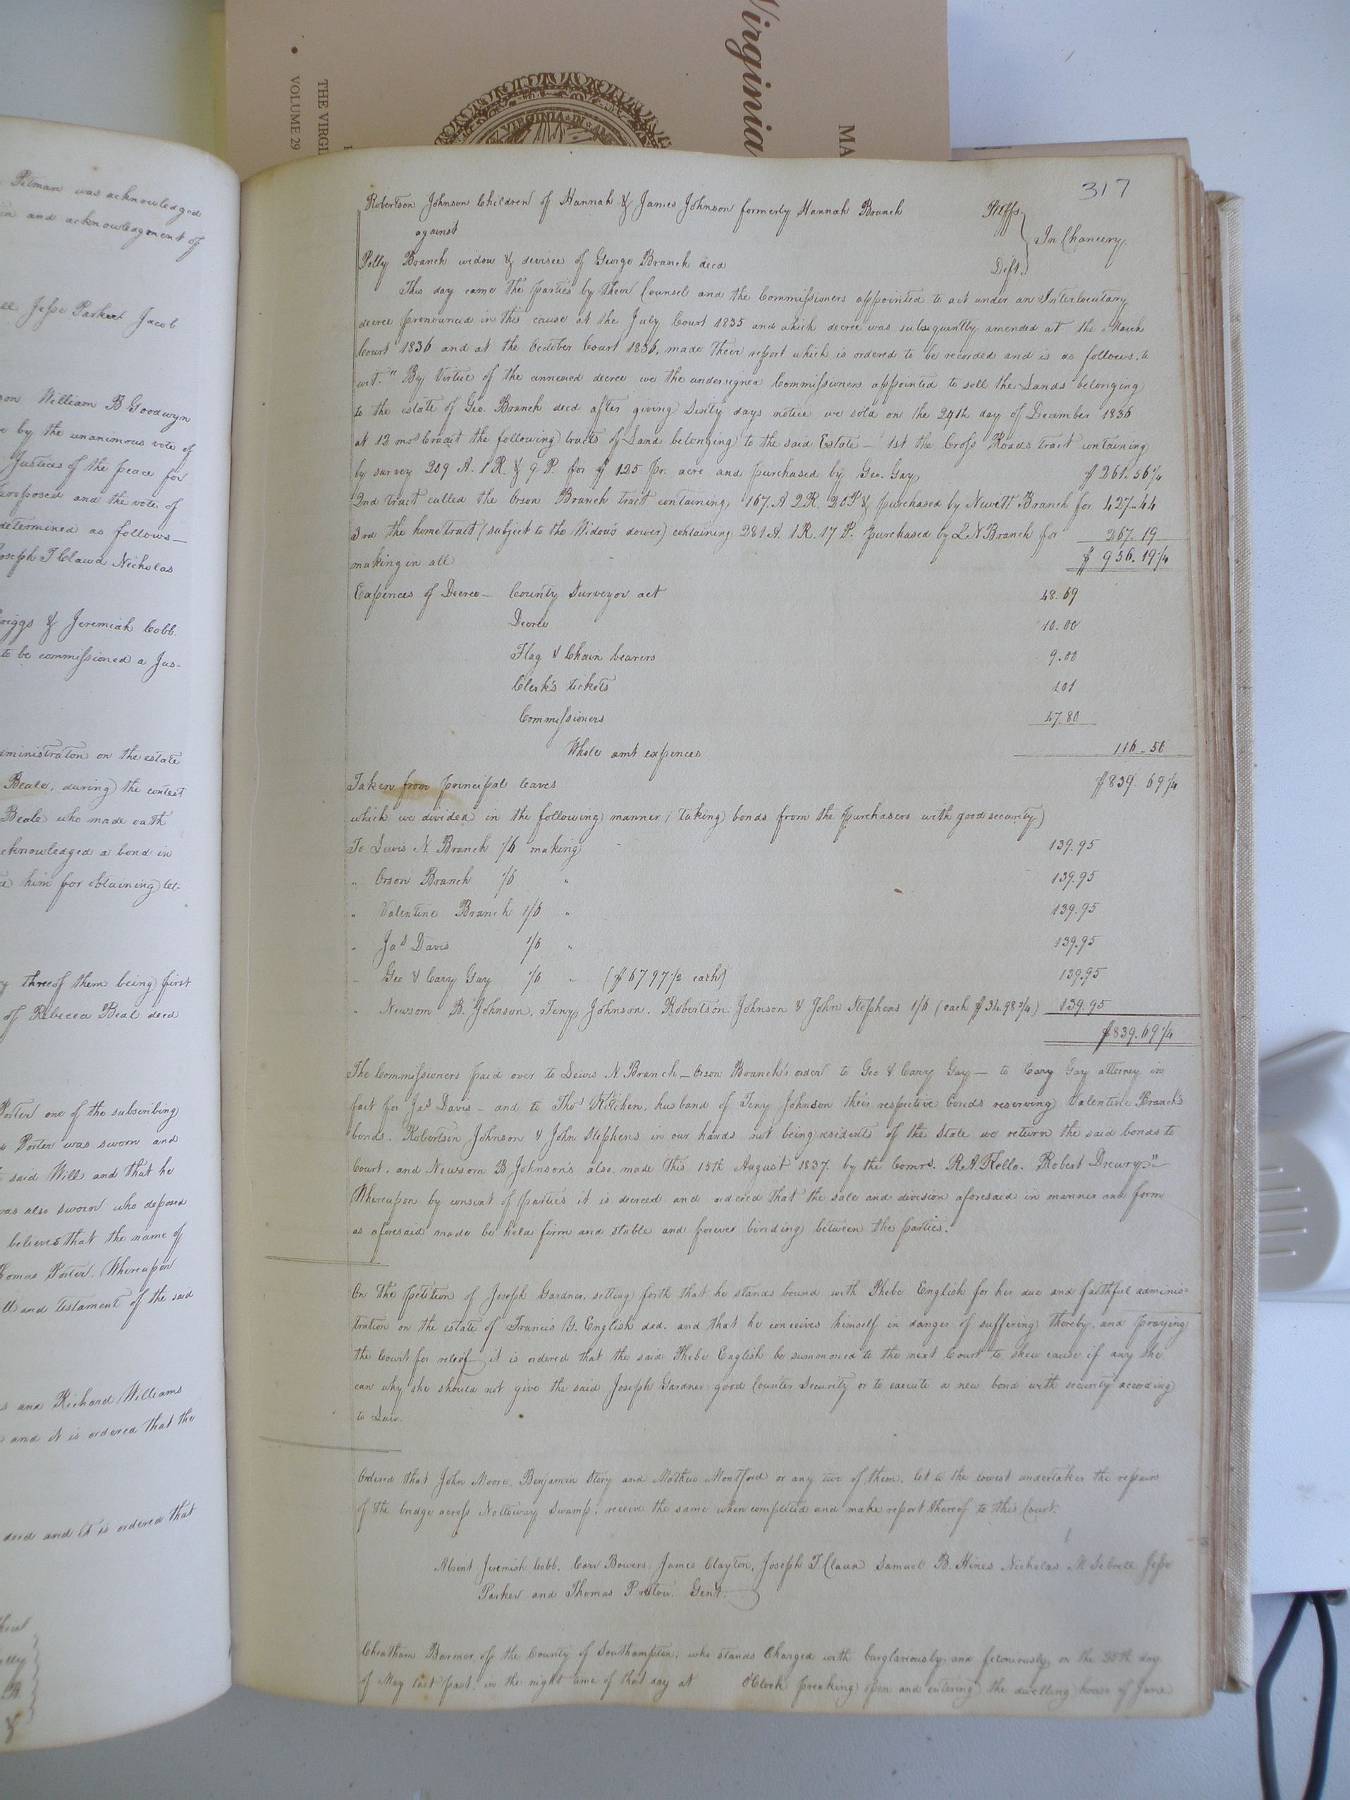 Virginia
MA
THE VIRGI
VOLUME 29
VIRGINIA IN
Pitman was acknowledged
and acknowledgment of
Jesse Parker Jacob
William B Goodwyn
by the unanimous vote of
Justices of the peace for
proposed and the vote of
determined as follows—
Joseph T Claud Nicholas
riggs & Jeremiah Cobb.
to be commissioned a Jus-
ministration on the estate
Beale, during the contest
Beale who made oath
cknowledged a bond in
him for obtaining let-
three of them being first
of Rebecca Beal decd
Porter one of the subscribing
Porter was sworn and
said Will and that he
was also sworn who deposed
believes that the name of
Thomas Porter. Whereupon
and testament of the said
and Richard Williams
and it is ordered that the
deed and it is ordered that
317
Robertson Johnson Children of Hannah & James Johnson formerly Hannah Branch Pltffs
against
In Chancery.
Polly Branch widow & devisee of George Branch decd Deft.
This day came the parties by their Counsel and the Commissioners appointed to act under an Interlocutary
decree pronounced in this cause at the July Court 1835 and which decree was subsequently amended at the March
Court 1836 and at the October Court 1836, made their report which is ordered to be recorded and is as follows, to
wit. "By Virtue of the annexed decree we the undersigned Commissioners appointed to sell the Lands belonging
to the estate of Geo. Branch decd after giving Sixty days notice we sold on the 24th day of December 1836
at 12 mos Credit the following tracts of Land belonging to the said Estate— 1st the Cross Roads tract containing
by survey 209 A. 1 R. & 9 P. for $ 1.25 pr. acre and purchased by Geo. Gay $ 261.56¼
2nd tract called the Orson Branch tract containing 167. A 2R. 20P & purchased by Newitt Branch for 427-44
3rd the home tract (subject to the Widow's dower) containing 281 A. 1 R. 17 P. purchased by L N Branch for 267. 19
making in all $ 956.19¼
Expences of Decree— County Surveyor act 48.69
Decree 10.00
Flag & Chain bearers 9.00
Clerk's tickets 1.01
Commissioners 47.80
Whole amt expences 116-50
Taken from principal leaves $839. 69¼
which we divided in the following manner, (taking bonds from the purchasers with good security)
To Lewis N. Branch 1/6 making 139.95
" Orson Branch 1/6 " 139.95
" Valentine Branch 1/6 " 139.95
" Jas Davis 1/6 " 139.95
" Geo & Carry Gay 1/6 " ($67 97½ each) 139.95
" Newsom B. Johnson, Teny Johnson, Robertson Johnson & John Stephens 1/6 (each $34.98¾) 139.95
$839.69¼
The Commissioners paid over to Lewis N Branch— Orson Branch's order to Geo & Carry Gay— to Carry Gay attorney in
fact for Jas Davis— and to Thos Kitchen, husband of Teny Johnson their respective bonds reserving Valentine Branch's
bonds. Robertson Johnson & John Stephens in our hands not being residents of the State we return the said bonds to
Court, and Newsom B Johnson's also, made this 15th August 1837. by the Comrs. R.A. Kello. Robert Drewry"
Whereupon by consent of parties it is decreed and ordered that the sale and division aforesaid in manner and form
as aforesaid made be held firm and stable and forever binding between the parties.
On the petition of Joseph Gardner, setting forth that he stands bound with Phebe English for her due and faithful adminis-
tration on the estate of Francis B. English decd. and that he conceives himself in danger of suffering thereby, and praying
the Court for releof, it is ordered that the said Phebe English be summoned to the next Court to shew cause if any she
can why she should not give the said Joseph Gardner good Counter Security or to execute a new bond with security according
to Law.
Ordered that John Moore, Benjamin Story and Mathew Montford or any two of them, let to the lowest undertaker the repairs
of the bridge across Nottoway Swamp, receive the same when completed and make report thereof to this Court.
Absent Jeremiah Cobb, Carr Bowers, James Clayton, Joseph T Claud Samuel B. Hines Nicholas M Sebrell Jesse
Parker and Thomas Pretlow Gent.
Cheatham Barmer of the County of Southampton, who stands Charged with burglariously and feloniously, on the 30th day
of May last past, in the night time of that day at OClock breaking open and entering the dwelling house of Jane